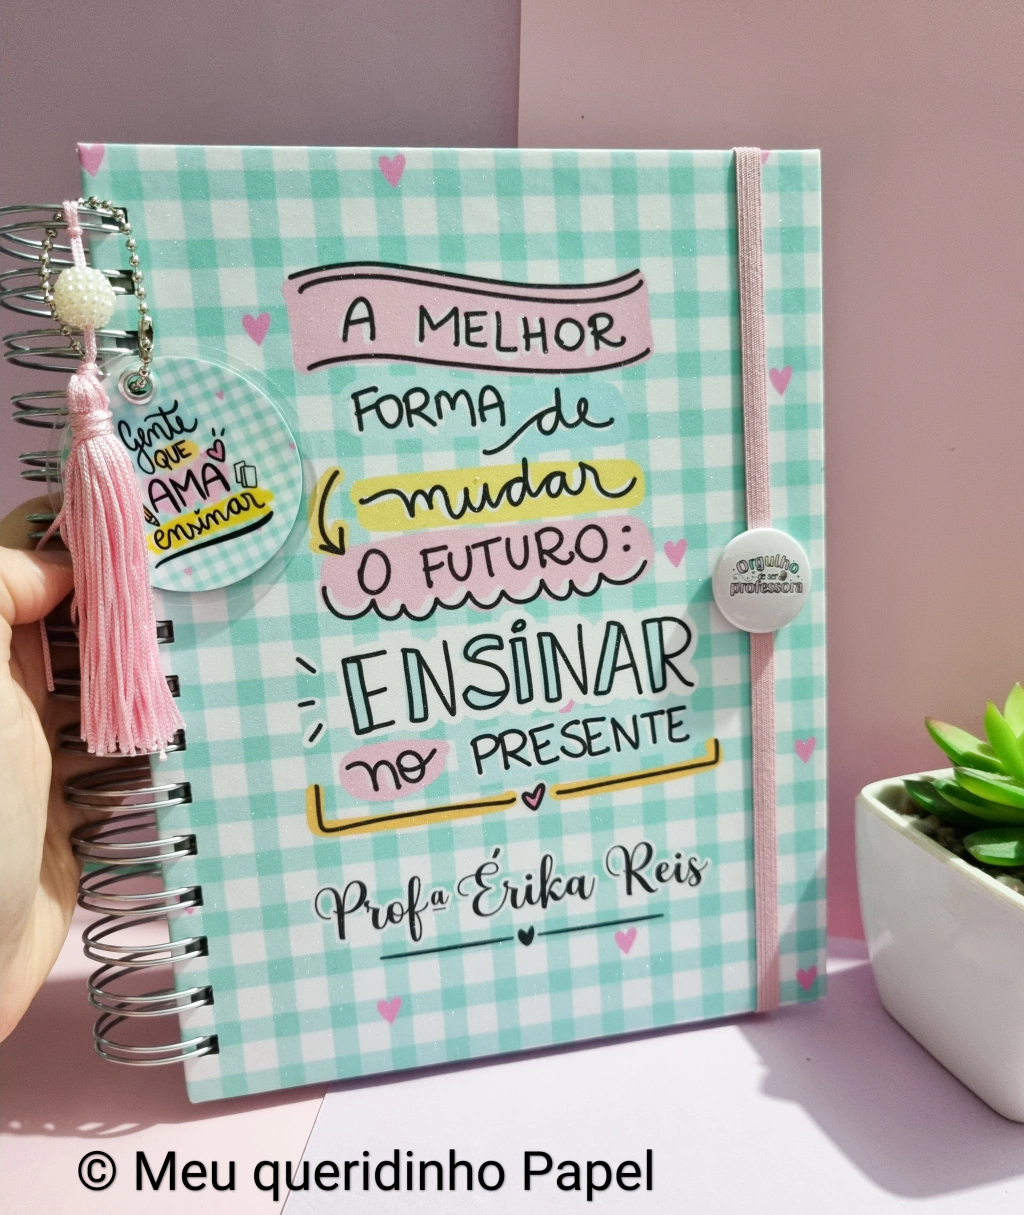 A MELHOR
FORMA de
mudar
O FUTURO:
ENSiNAR
no PRESENTE
Profª Érika Reis
Gente
QUE
AMA
ensinar
Orgulho
de ser
professora
© Meu queridinho Papel